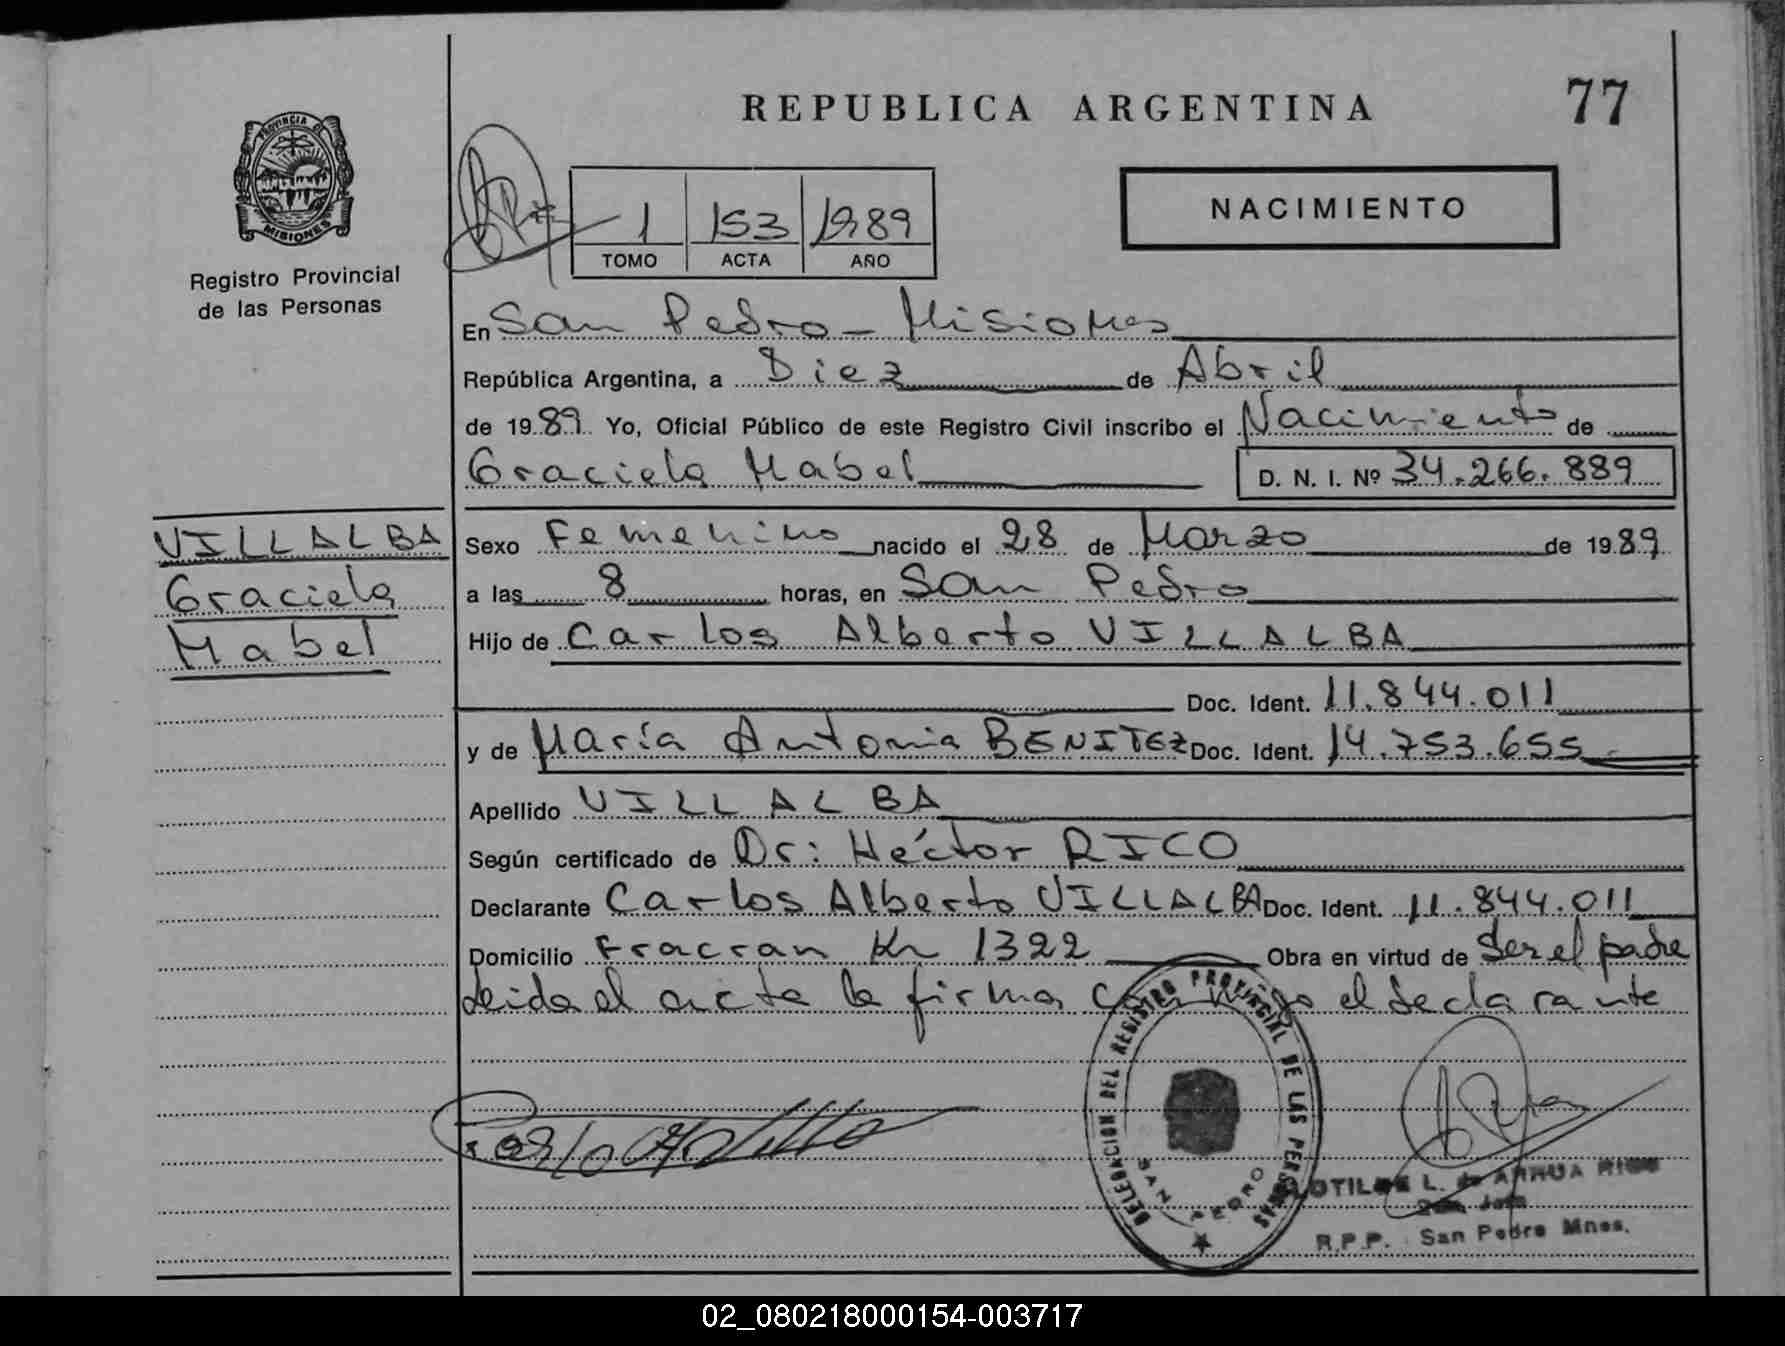 REPUBLICA ARGENTINA
77
PROVINCIA DE
MISIONES
Registro Provincial
de las Personas
1 153 1989
TOMO ACTA AÑO
NACIMIENTO
En San Pedro - Misiones
República Argentina, a Diez de Abril
de 1989 Yo, Oficial Público de este Registro Civil inscribo el Nacimiento de
Graciela Mabel D. N. I. Nº 34.266.889
VILLALBA
Graciela
Mabel
Sexo Femenino nacido el 28 de Marzo de 1989
a las 8 horas, en San Pedro
Hijo de Carlos Alberto VILLALBA
Doc. Ident. 11.844.011
y de María Antonia BENITEZ Doc. Ident. 14.753.655
Apellido VILLALBA
Según certificado de Dr: Héctor RICO
Declarante Carlos Alberto VILLALBA Doc. Ident. 11.844.011
Domicilio Fracran Km 1322 Obra en virtud de Ser el padre
Leida el acta la firma conmigo el declarante
DELEGACION DEL REGISTRO PROVINCIAL DE LAS PERSONAS
SAN PEDRO
CLOTILDE L. de ARRUA RIOS
R.P.P. San Pedro Mnes.
02_080218000154-003717